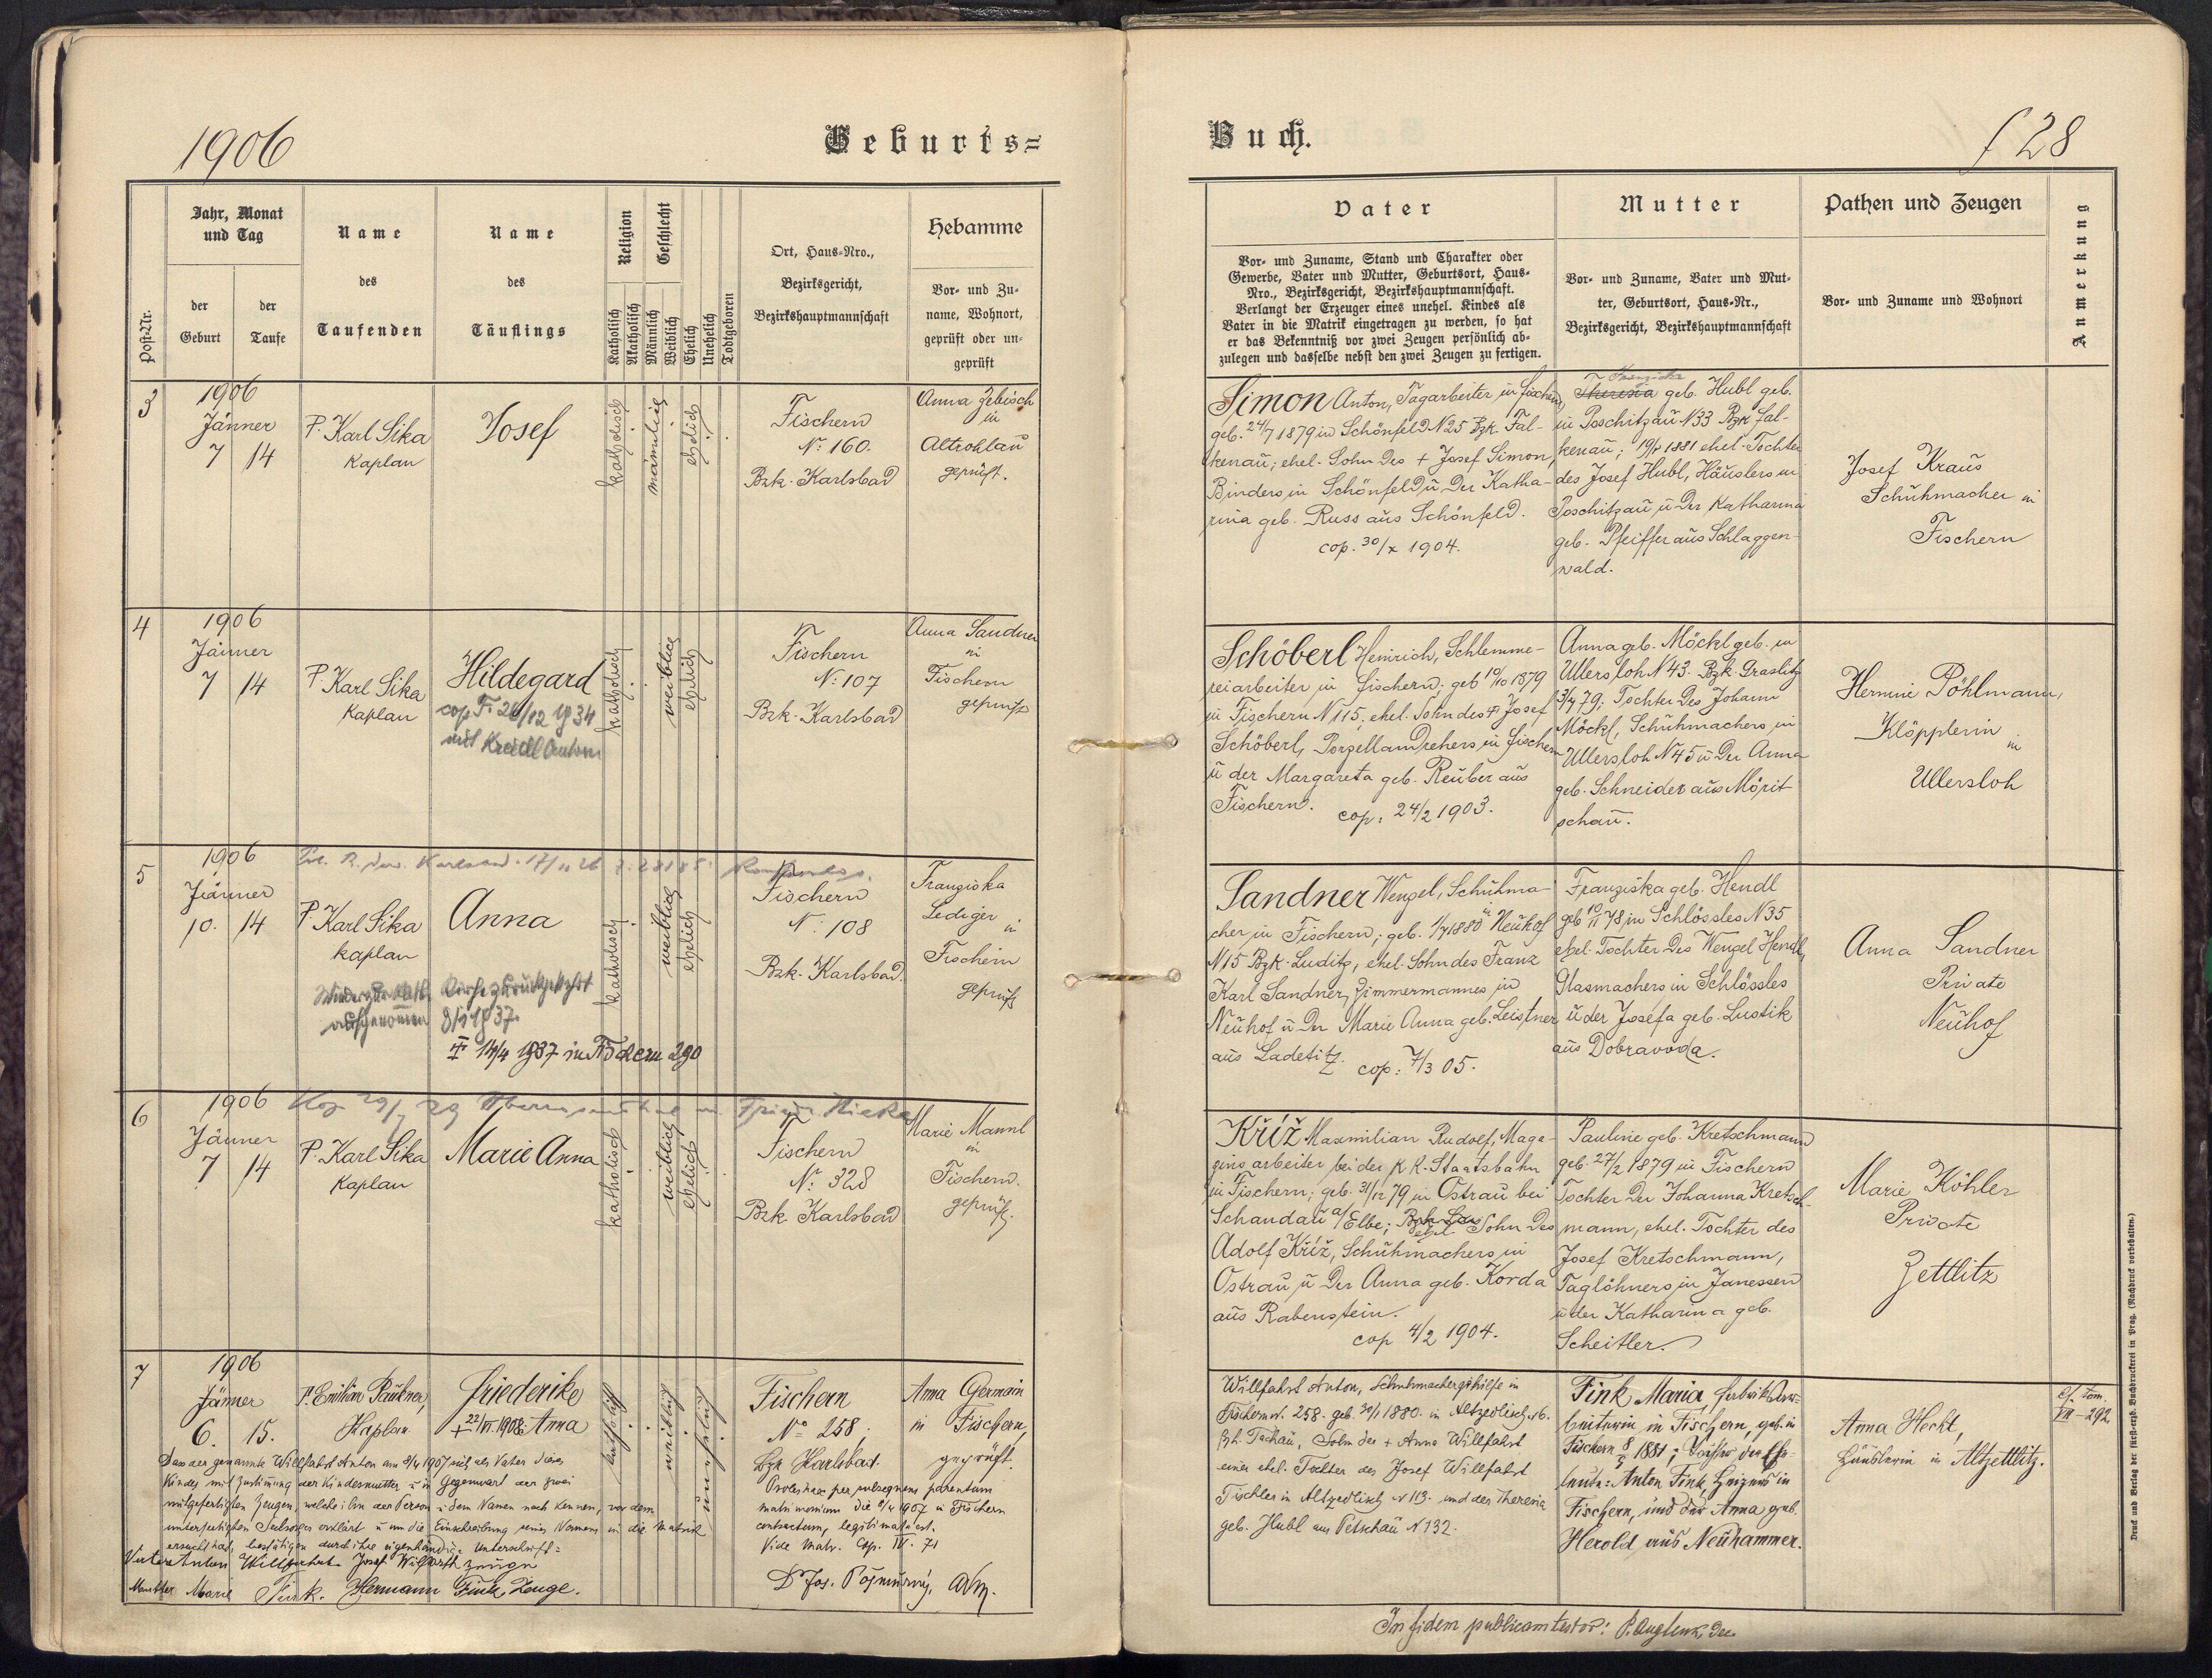 1906
Geburts=
Post-Nr.
Jahr, Monat
und Tag
der
Geburt
der
Taufe
Name
des
Taufenden
Name
des
Täuflings
Religion
Katholisch
Akatholisch
Geschlecht
Männlich
Weiblich
Ehelich
Unehelich
Todtgeboren
Ort, Haus-Nro.,
Bezirksgericht,
Bezirkshauptmannschaft
Hebamme
Vor- und Zu-
name, Wohnort,
geprüft oder un-
geprüft
3
1906
Jänner
7 14
P. Karl Sika
Kaplan
Josef
katholisch
männlich
ehelich
Fischern
No. 160.
Bzk. Karlsbad
Anna Zebisch
in
Altrohlau
geprüft.
4
1906
Jänner
7 14
P. Karl Sika
Kaplan
Hildegard
cop. Fi 26/12 1934
mit Kreidl Anton
katholisch
weiblich
ehelich
Fischern
No: 107
Bzk. Karlsbad
Anna Sandner
in
Fischern
geprüft
5
1906
Jänner
10. 14
Karlsbad 17/11 26 Z: 28185
P. Karl Sika
Kaplan
Anna
Wieder zur kath. Kirche zurückgekehrt
aufgenommen 8/1 1937.
14/4 1937 in 290
katholisch
weiblich
ehelich
Fischern
No: 108
Bzk. Karlsbad
Franziska
Lediger
in
Fischern
geprüft
6
1906
Jänner
7 14
P. Karl Sika
Kaplan
Marie Anna
katholisch
weiblich
ehelich
Fischern
No: 328
Bzk. Karlsbad
Marie Mannl
in
Fischern.
geprüft.
7
1906
Jänner
6. 15.
P. Emilian Paukner,
Kaplan
Friederike
+ 22/VI. 1908. Anna
katholisch
weiblich
unehelich
Fischern
No 258,
Bzk Karlsbad.
Anna Germain
in Fischern,
geprüft.
Das der genannte Willfahrt Anton am 9/4 1907 sich als Vater dieses
Kindes mit Zustimung der Kindesmutter u in Gegenwart der zwei
mitgefertigten Zeugen, welche ihn der Person u dem Namen nach kennen, vor dem
unterfertigten Seelsorger erklärt u um die Einschreibung seines Namens in die Matrik
ersucht hat, bestätigen durch ihre eigenhändige Unterschrift =
Vater Anton Willfahrt Josef Willfarth Zeuge
Mutter Marie Fink. Hermann Fink, Zeuge.
Proles haec per subsequens parentum
matrimonium die 9/4 1907 in Fischern
contractum, legitimata est.
Vide Matr. Cop. IV. 71
Dr Jos. Adm.
Buch.
f 28
Vater
Vor- und Zuname, Stand und Charakter oder
Gewerbe, Vater und Mutter, Geburtsort, Haus-
Nro., Bezirksgericht, Bezirkshauptmannschaft.
Verlangt der Erzeuger eines unehel. Kindes als
Vater in die Matrik eingetragen zu werden, so hat
er das Bekenntniß vor zwei Zeugen persönlich ab-
zulegen und dasselbe nebst den zwei Zeugen zu fertigen.
Mutter
Vor- und Zuname, Vater und Mut-
ter, Geburtsort, Haus-Nr.,
Bezirksgericht, Bezirkshauptmannschaft
Pathen und Zeugen
Vor- und Zuname und Wohnort
Anmerkung
Simon Anton, Tagarbeiter in Fischern,
geb. 24/7 1879 in Schönfeld N 25 Bzk. Fal-
kenau; ehel. Sohn des + Josef Simon,
Binders in Schönfeld u. der Katha-
rina geb. Russ aus Schönfeld.
cop. 30/X 1904.
Franziska
Theresia geb. Hubl geb.
in Poschitzau N 33 Bzk Fal-
kenau; 19/1 1881 ehel. Tochter
des Josef Hubl, Häuslers in
Poschitzau u der Katharina
geb. Pfeiffer aus Schlaggen-
wald.
Josef Kraus
Schuhmacher in
Fischern
Schöberl Heinrich, Schlemme-
reiarbeiter in Fischern; geb 10/10 1879
in Fischern N 115; ehel. Sohn des + Josef
Schöberl, Porzellandrehers in Fischern
u der Margareta geb. Reuber aus
Fischern.
cop: 24/2 1903.
Anna geb. Möckl geb. in
Ullersloh N 43. Bzk. Graslitz
3/7 79; Tochter des Johann
Möckl, Schuhmachers in
Ullersloh N 45 u der Anna
geb. Schneider aus Mörit
schau.
Hermine Pöhlmann,
Klöpplerin
in
Ullersloh
Sandner Wenzel, Schuhma-
cher in Fischern; geb. 1/7 1880 in Neuhof
N 15 Bzk. Luditz, ehel. Sohn des Franz
Karl Sandner, Zimmermannes in
Neuhof u der Marie Anna geb. Leistner
aus Ladetitz. cop: 7/3 05.
Franziska geb. Hendl
geb 10/11 78 in Schlössles N 35
ehel. Tochter des Wenzel Hendl,
Glasmachers in Schlössles
u der Josefa geb. Lustik
aus Dobrawoda.
Anna Sandner
Private
Neuhof
Kříž Maxmilian Rudolf, Maga-
zinsarbeiter bei der k.k. Staatsbahn
in Fischern; geb. 31/12 79 in Ostrau bei
Schandau a/Elbe; ehel Sohn des
Adolf Kříž, Schuhmachers in
Ostrau u der Anna geb. Korda
aus Rabenstein.
cop 4/2 1904.
Pauline geb. Kretschmann
geb. 27/2 1879 in Fischern
Tochter der Johanna Kretsch-
mann, ehel. Tochter des
Josef Kretschmann,
Taglöhners in Janessen
u der Katharina geb.
Scheitler.
Marie Köhler
Private
Zettlitz
Willfahrt Anton, Schuhmachergehilfe in
Fischern N. 258. geb. 30/1 1880. in Altzedlisch N 6.
Bh. Tachau, Sohn der + Anna Willfahrt
einer ehel. Tochter des Josef Willfahrt
Tischler in Altzedlisch N 113. und der Theresia
geb. Hubl aus Petschau N 132.
Fink Maria, Fabriksar-
beiterin in Fischern, geb. in
Fischern 8/5 1881; Tochter der Ehe-
leute: Anton Fink, Heizers in
Fischern, und der Anna geb.
Herold aus Neuhammer.
Anna Hecht,
Häuslerin in Altzettlitz.
cf. Tom.
VII-292
In fidem publicam testor:
Druck und Verlag der fürst-erzb. Buchdruckerei in Prag. (Nachdruck vorbehalten.)